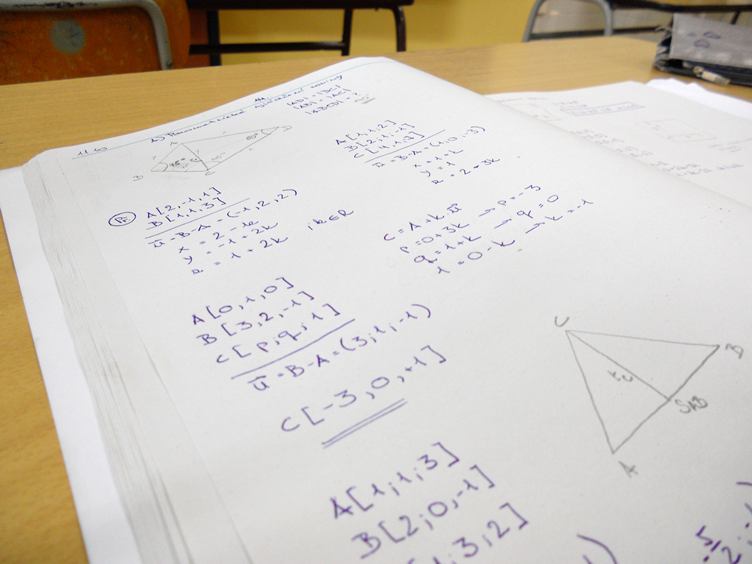 A[2,-1,1]
B[1,1,3]
u = B-A = (-1,2,2)
x = 2-1k
y = -1+2k , k∈R
z = 1+2k
A[1,1,2]
B[2,1,-1]
u = B-A = (1,0,-3)
x = 1+k
y = 1
z = 2-3k
A[0,1,0]
B[3,2,-1]
C[p,q,1]
u = B-A = (3;1;-1)
C[-3,0,+1]
C = A+k.u
p = 0+3k → p = -3
q = 1+k → q = 0
1 = 0-k → k = -1
C
B
tc
SAB
A
A[1;1;3]
B[2;0,-1]
;3;2]
5/2